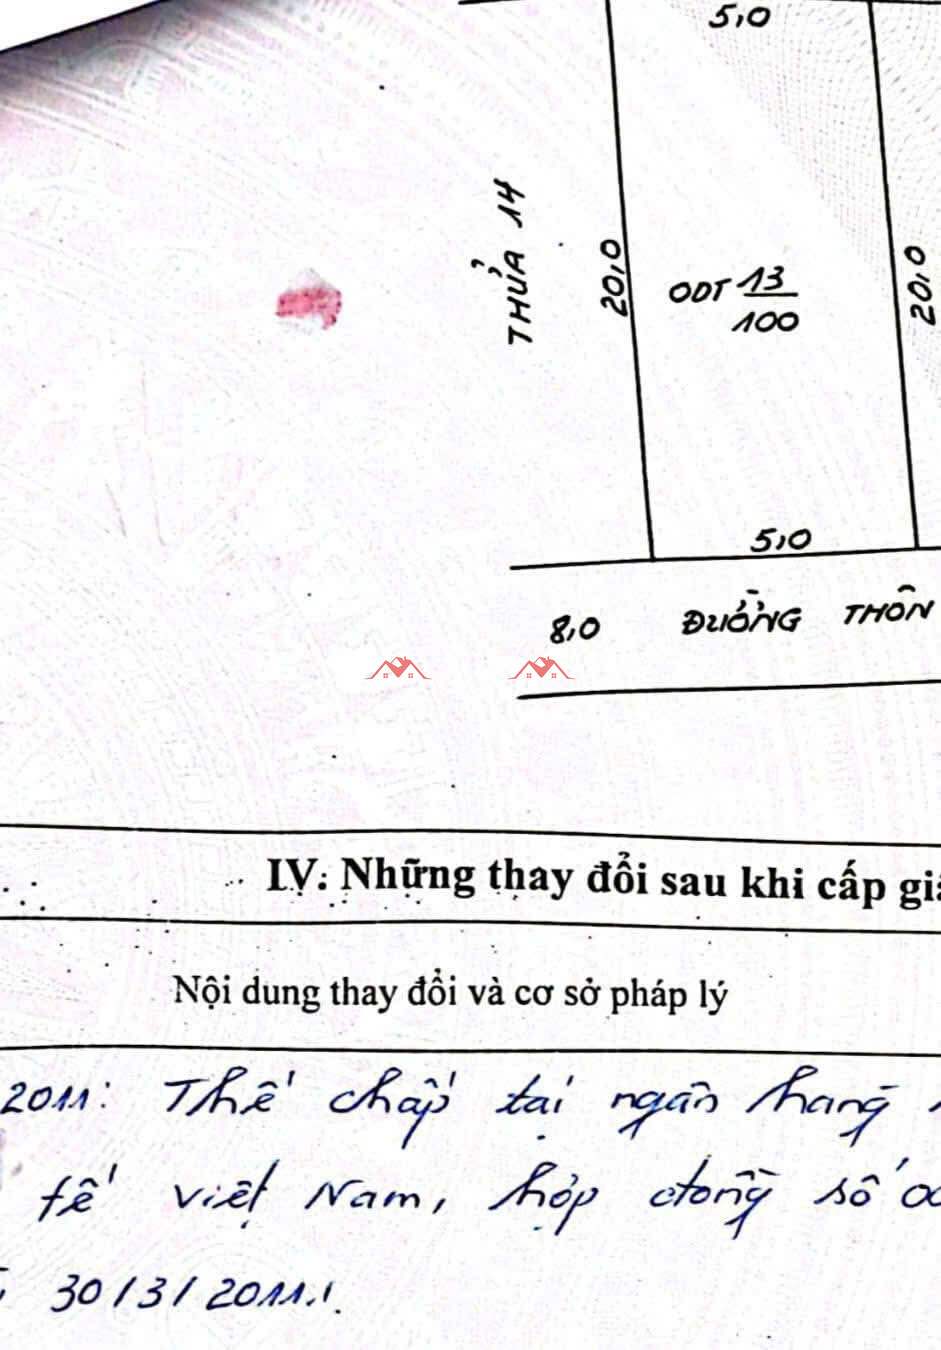 5,0
THỬA 14
20,0
ODT 13
100
20,0
5,0
8,0 ĐƯỜNG THÔN
IV. Những thay đổi sau khi cấp gi
Nội dung thay đổi và cơ sở pháp lý
2011: Thế chấp tại ngân hàng
tế Việt Nam, hợp đồng số
30/3/2011.